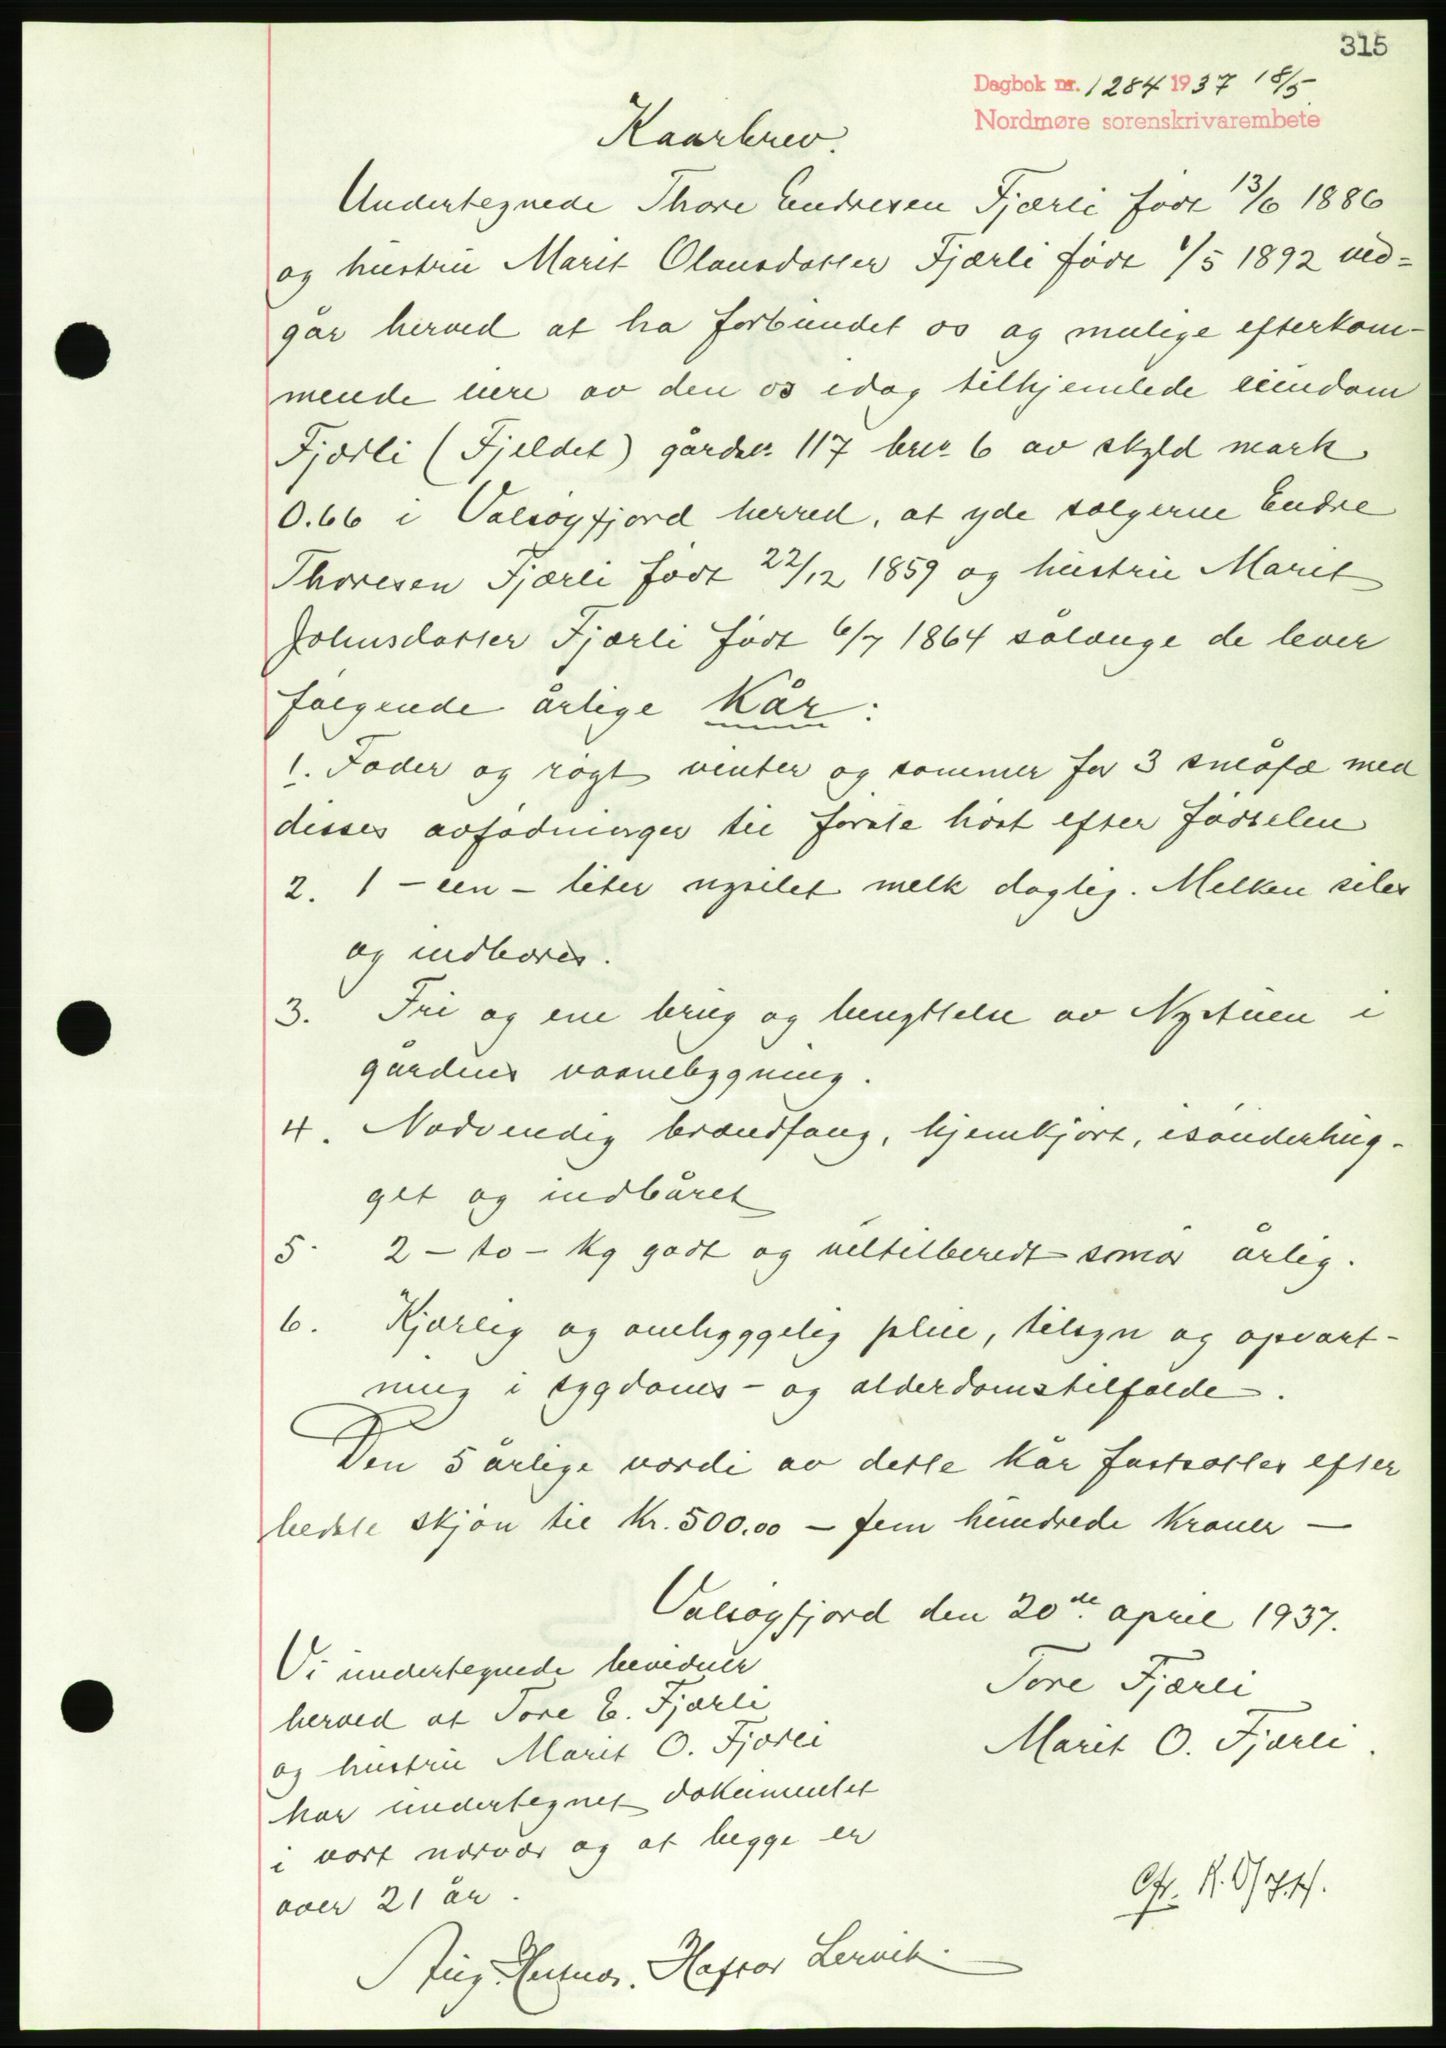 315
Dagbok nr. 1284 1937 18/5
Nordmøre sorenskrivarembete
Kaarbrev.
Undertegnede Thore Endresen Fjærli født 13/6 1886
og hustru Marit Olausdatter Fjærli født 1/5 1892 ved=
går herved at ha forbundet os og mulige efterkom-
mende eiere av den os idag tilhjemlede eiendom
Fjærli (Fjeldet) gårdsnr. 117 brnr. 6 av skyld mark
0.66 i Valsøyfjord herred, at yde sælgerne Endre
Thoresen Fjærli født 22/12 1859 og hustru Marit
Johnsdatter Fjærli født 6/7 1864 sålænge de lever
følgende årlige Kår:
1. Foder og røgt vinter og sommer for 3 småfæ med
disses avfødninger til første høst efter fødselen
2. 1 - een - liter nysilet melk daglig. Melken siles
og indbæres.
3. Fri og ene brug og benyttelse av Nystuen i
gårdens vaanebygning.
4. Nødvendig brændfang, hjemkjørt, isønderhug-
get og indbåret
5. 2 - to - kg godt og veltilberedt smør årlig.
6. Kjærlig og omhyggelig pleie, tilsyn og opvart-
ning i sygdoms- og alderdomstilfælde.
Den 5 årlige værdi av dette kår fastsættes efter
bedste skjøn til Kr. 500.00 - fem hundrede kroner -
Valsøyfjord den 20de april 1937.
Vi undertegnede bevidner
herved at Tore E. Fjærli
og hustru Marit O. Fjærli
har undertegnet dokumentet
i vort nærvær og at begge er
over 21 år.
Tore Fjærli
Marit O. Fjærli.
Hafsor Lervik.